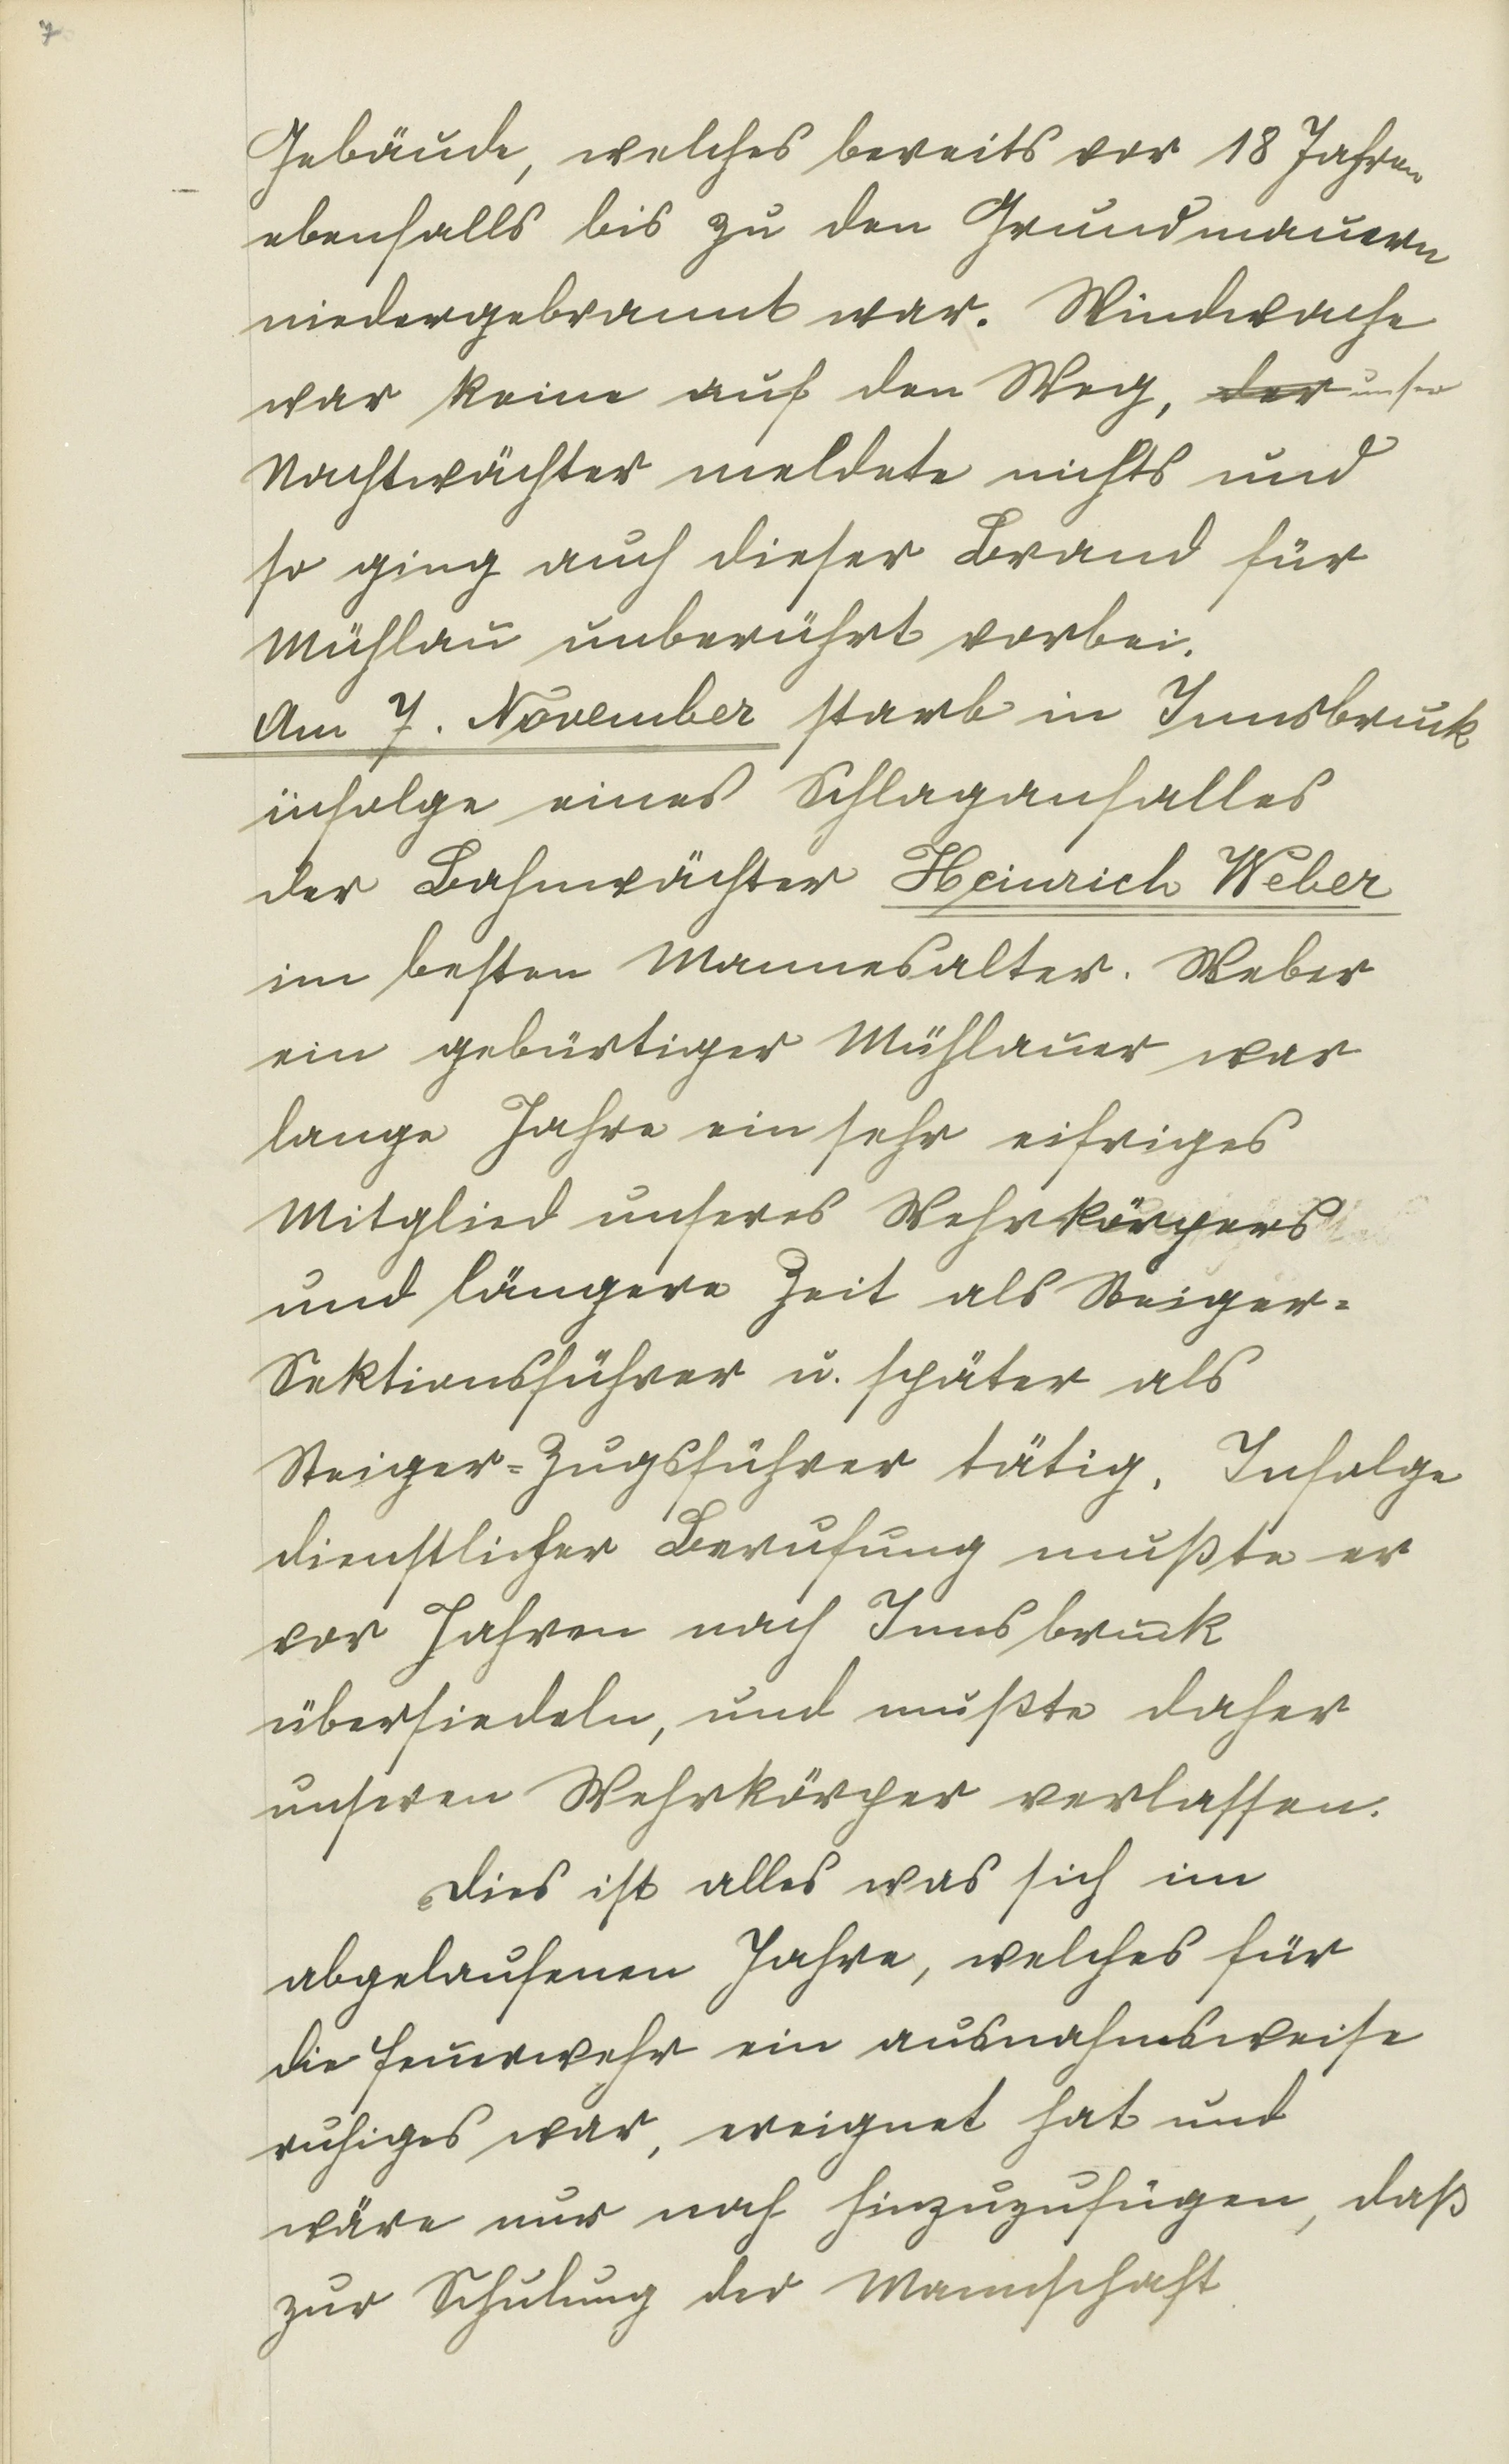 7
Gebäude, welches bereits vor 18 Jahren
ebenfalls bis zu den Grundmauern
niedergebrannt war. Windwache
war keine auf den Weg, der unser
Nachtwächter meldete nichts und
so ging auch dieser Brand für
Mühlau unberührt vorbei.
Am 7. November starb in Innsbruck
infolge eines Schlaganfalles
der Bahnwächter Heinrich Weber
im besten Mannesalter. Weber
ein gebürtiger Mühlauer war
lange Jahre ein sehr eifriges
Mitglied unseres Wehrkörpers
und längere Zeit als Steiger-
Sektionsführer u. später als
Steiger-Zugsführer tätig. Infolge
dienstlicher Berufung mußte er
vor Jahren nach Innsbruck
übersiedeln, und mußte daher
unseren Wehrkörper verlassen.
Dies ist alles was sich im
abgelaufenen Jahre, welches für
die Feuerwehr ein ausnahmsweise
ruhiges war, ereignet hat und
wäre nur noch hinzuzufügen, daß
zur Schulung der Mannschaft